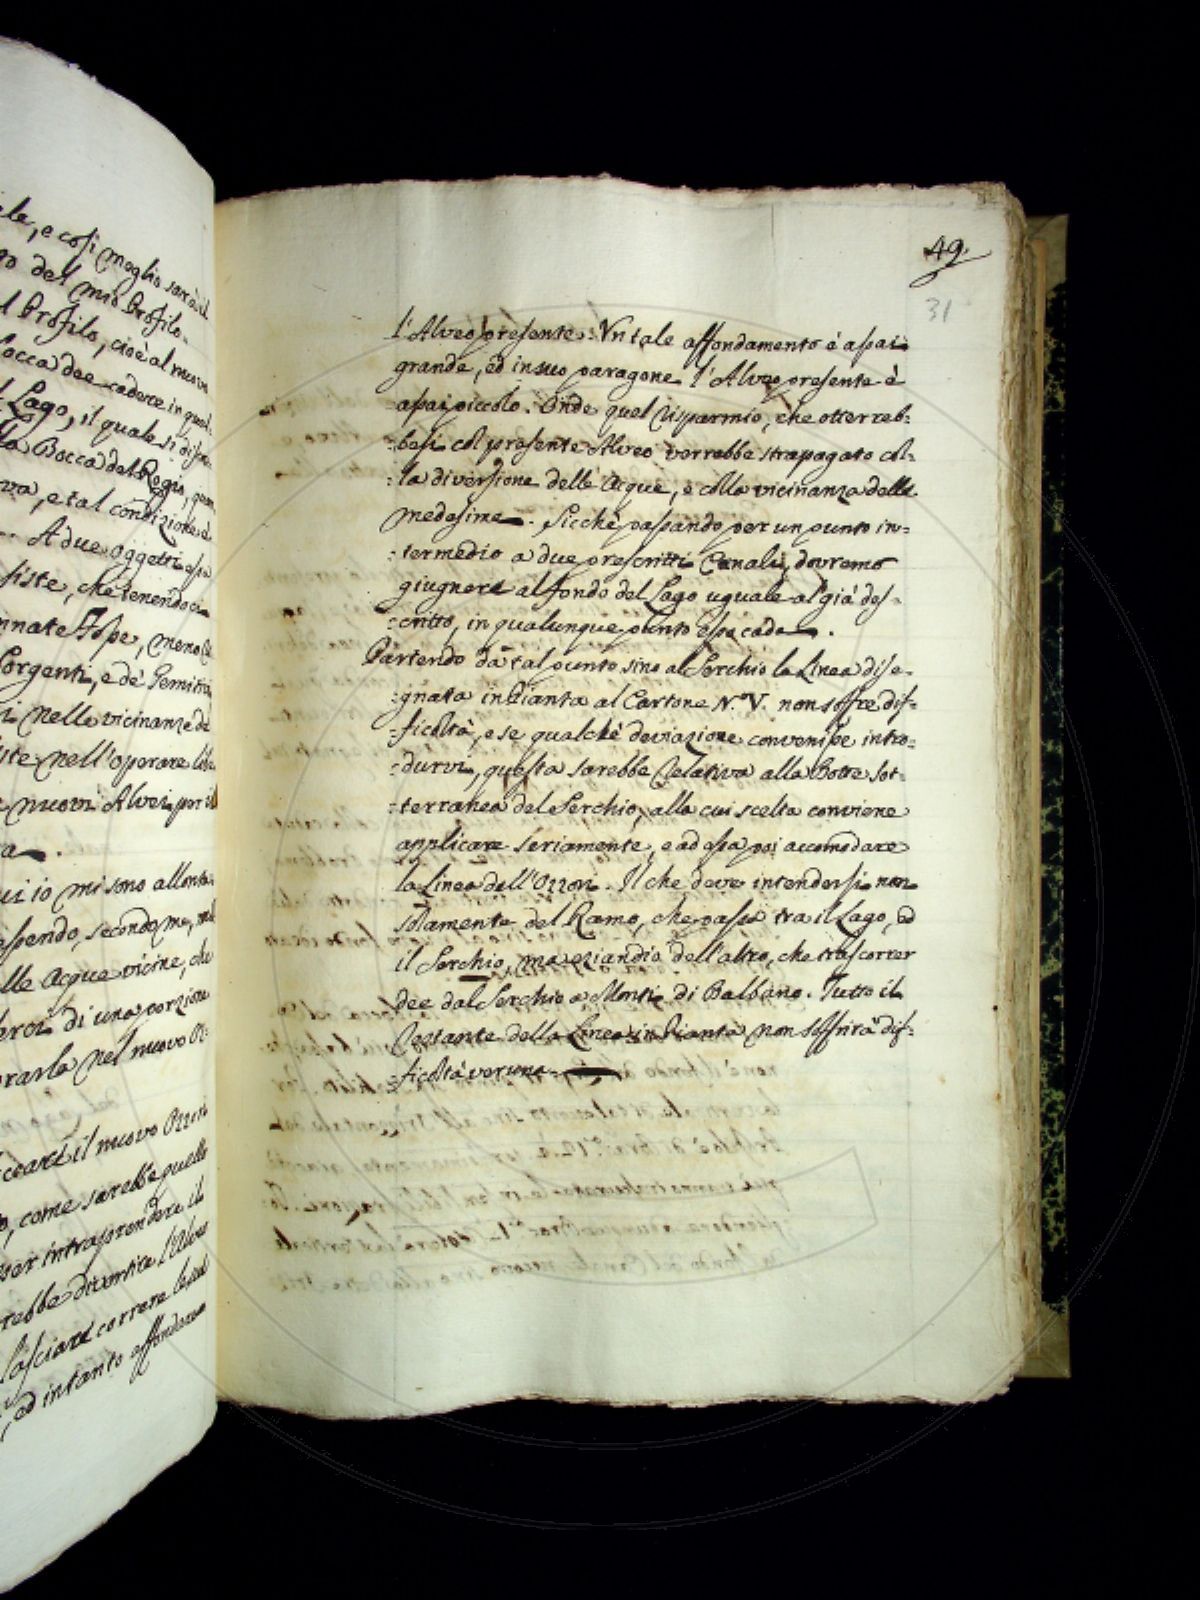 ile, e così meglio sarà il
go del mio Profilo.
l Profilo, cioè al nuovo
Bocca dee cadere in quel
l Lago, il quale si
lla Bocca del Regio,
va, e tal condizione
A due oggetti essa
siste, che tenendoci
nnate Fosse, meno
Sorgenti, e de' Gemitivi
i nelle vicinanze de
iste nell'operare
e nuovi Alvei per il
ra.
ui io mi sono
spendo, secondo me,
lle Acque vicine, che
di una porzione
rarla nel nuovo
il nuovo Ozzori
o, come sarebbe quello
per intraprendere il
rebbe divertire l'Alveo
lasciare correre le
, ed intanto affondare
49.
31
l'Alveo presente. Un tale affondamento è assai
grande, ed in suo paragone l'Alveo presente è
assai piccolo. Onde quel risparmio, che otterreb-
-besi col presente Alveo verrebbe strapagato col-
-la diversione delle Acque, e colla vicinanza delle
medesime. Sicchè passando per un punto in-
-termedio a due prescritti Canali, dovremo
giugnere al fondo del Lago uguale al già des-
-critto, in qualunque punto esso cada.
Partendo da tal punto sino al Serchio la Linea dise-
-gnata in Pianta al Cartone N.º V. non soffre dif-
-ficoltà, e se qualche deviazione convenisse intro-
-durvi, questa sarebbe relativa alla Botte sot-
-terranea del Serchio, alla cui scelta conviene
applicare seriamente, e ad essa poi accomodare
la Linea dell'Ozzori. Il che deve intendersi non
solamente del Ramo, che passa tra il Lago, ed
il Serchio, ma eziandio dell'altro, che trascorrer
dee dal Serchio a Monti di Balbano. Tutto il
restante della Linea in Pianta non soffrirà dif-
-ficoltà veruna.